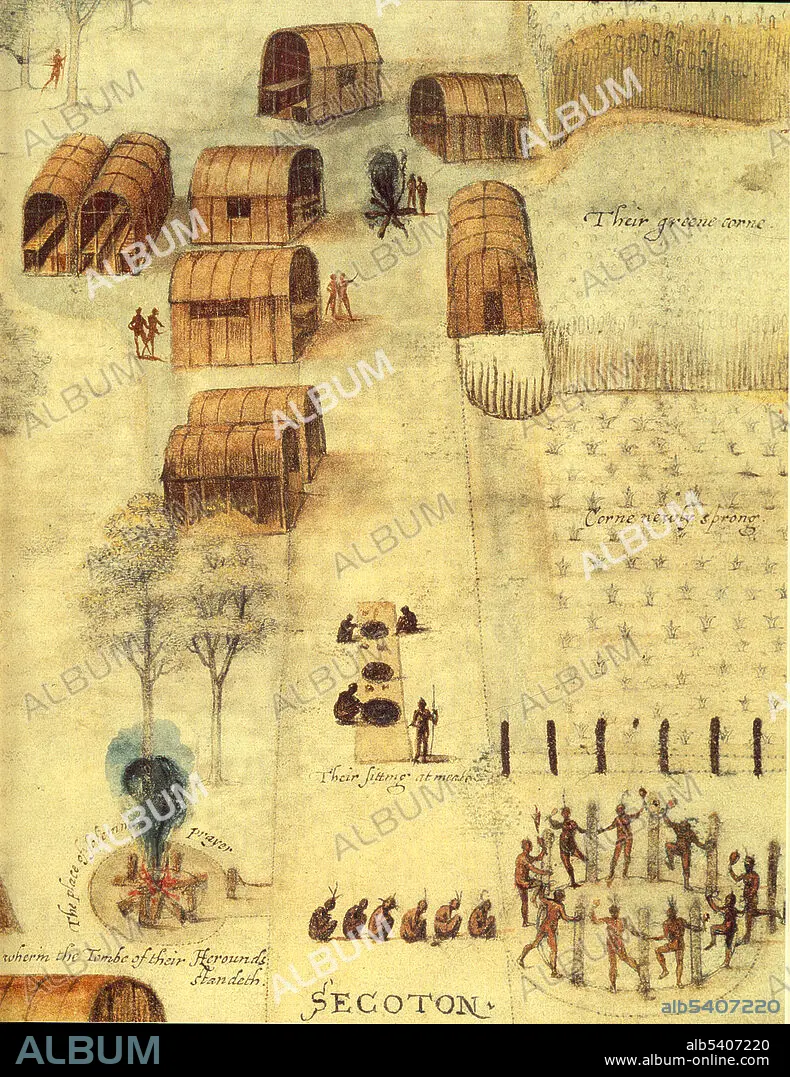 Their greene corne.
Corne newly sprong.
Their sitting at meate
The place of solemne prayer
wherin the Tombe of their Herounds
standeth.
SECOTON.
ALBUM
alb5407220
ALBUM
alb5407220
www.album-online.com